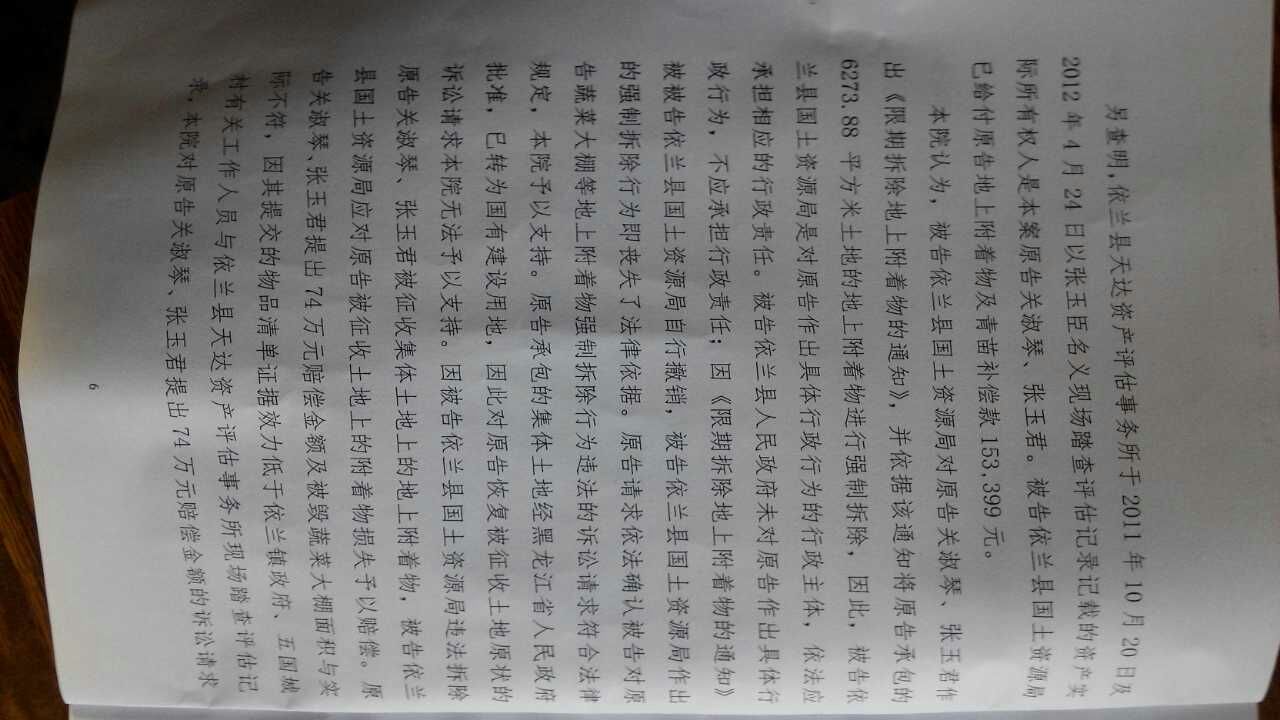 另查明，依兰县天达资产评估事务所于 2011 年 10 月 20 日及
2012 年 4 月 24 日以张玉臣名义现场踏查评估记录记载的资产实
际所有权人是本案原告关淑琴、张玉君。被告依兰县国土资源局
已给付原告地上附着物及青苗补偿款 153,399 元。
本院认为，被告依兰县国土资源局对原告关淑琴、张玉君作
出《限期拆除地上附着物的通知》，并依据该通知将原告承包的
6273.88 平方米土地的地上附着物进行强制拆除，因此，被告依
兰县国土资源局是对原告作出具体行政行为的行政主体，依法应
承担相应的行政责任。被告依兰县人民政府未对原告作出具体行
政行为，不应承担行政责任；因《限期拆除地上附着物的通知》
被被告依兰县国土资源局自行撤销，被告依兰县国土资源局作出
的强制拆除行为即丧失了法律依据。原告请求依法确认被告对原
告蔬菜大棚等地上附着物强制拆除行为违法的诉讼请求符合法律
规定，本院予以支持。原告承包的集体土地经黑龙江省人民政府
批准，已转为国有建设用地，因此对原告恢复被征收土地原状的
诉讼请求本院无法予以支持。因被告依兰县国土资源局违法拆除
原告关淑琴、张玉君被征收集体土地上的地上附着物，被告依兰
县国土资源局应对原告被征收土地上的附着物损失予以赔偿。原
告关淑琴、张玉君提出 74 万元赔偿金额及被毁蔬菜大棚面积与实
际不符，因其提交的物品清单证据效力低于依兰镇政府、五国城
村有关工作人员与依兰县天达资产评估事务所现场踏查评估记
录，本院对原告关淑琴、张玉君提出 74 万元赔偿金额的诉讼请求
6